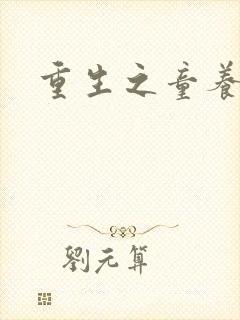 重生之童養
劉元算